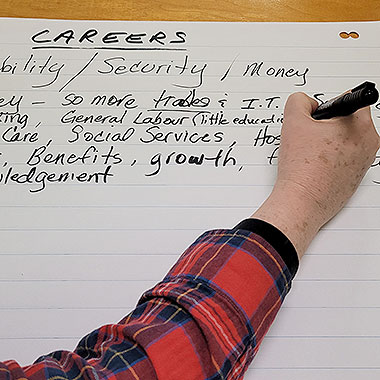 CAREERS
bility / Security / Money
ey - so more trades & I.T. S
ing, General Labour (little educati
Care, Social Services, Hos
, Benefits, growth, f
wledgement